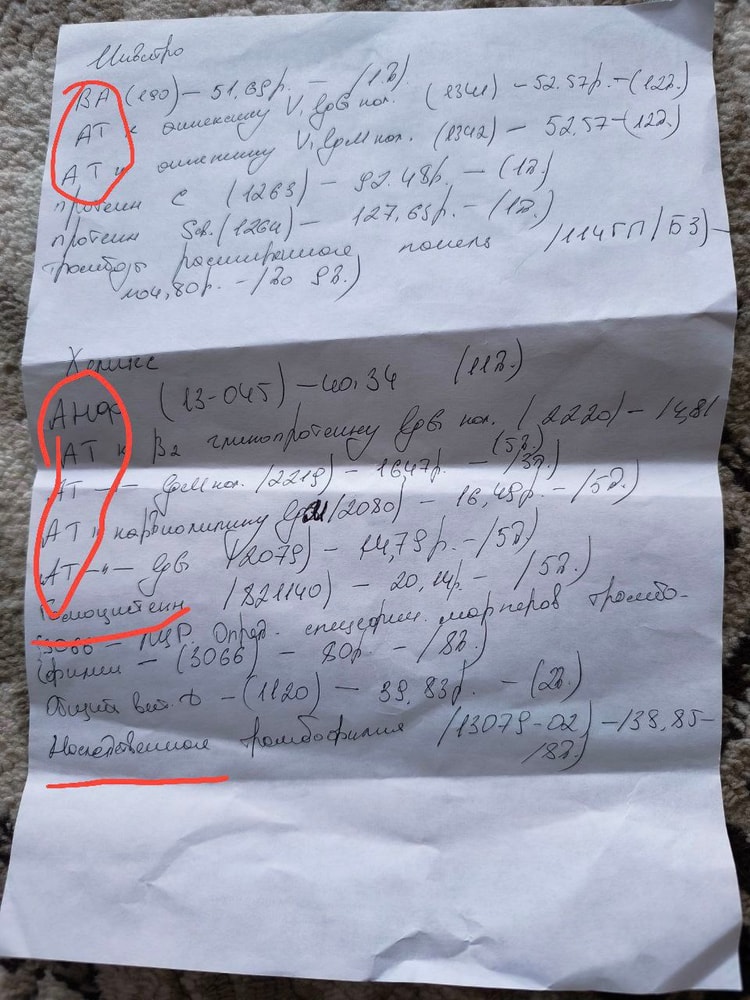 Инвитро
ВА (190) – 51,69р. – (1д)
АТ к аннексину V, IgG кол. (1341) – 52.57р. – (12д.)
АТ к аннексину V, IgM кол. (1342) – 52.57 – (12д.)
протеин С (1263) – 92.48р. – (1д)
протеин Sсв. (1264) – 127,65р. – (1д.)
тромбоз расширенная панель (114ГП/БЗ) –
104,80р. – (до 9д.)
Хеликс
АНФ (13-045) – 40,34 (11д.)
АТ к β2 гликопротеину IgG кол. (2220) – 14,81
(5д.)
АТ –"– IgM кол. (2219) – 16.47р. – (3д.)
АТ к кардиолипину IgM (2080) – 16,49р. – (5д.)
АТ –"– IgG (2079) – 14,79р. – (5д.)
Гомоцистеин (821140) – 20,14р. – (5д.)
3066 – ПЦР. Опред. специфич. маркеров тромбо-
филии – (3066) – 80р. – (8д.)
Общий вит. D – (1120) – 39,83р. – (2д.)
Наследственная тромбофилия (13079-02) – 138,85 –
(8д.)